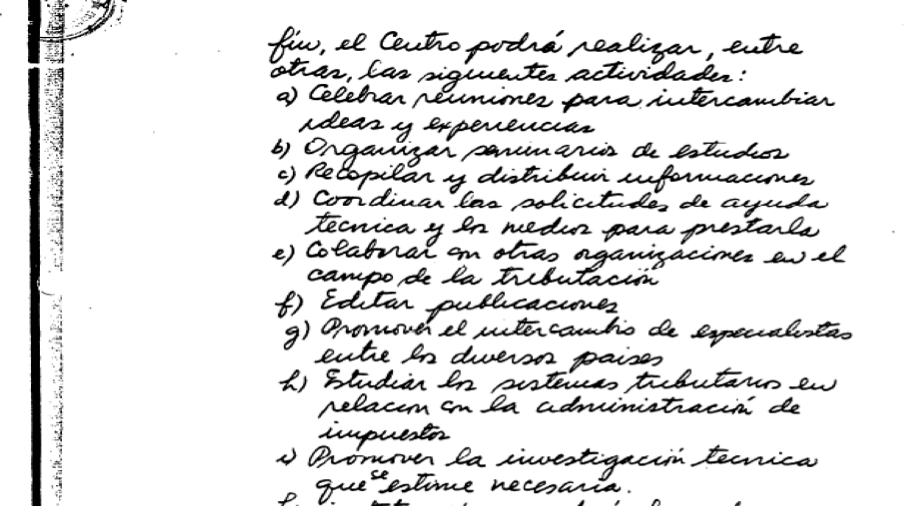 fin, el Centro podrá realizar, entre
otras, las siguientes actividades:
a) Celebrar reuniones para intercambiar
ideas y experiencias
b) Organizar seminarios de estudios
c) Recopilar y distribuir informaciones
d) Coordinar las solicitudes de ayuda
tecnica y los medios para prestarla
e) Colaborar con otras organizaciones en el
campo de la tributación
f) Editar publicaciones
g) Promover el intercambio de especialistas
entre los diversos paises
h) Estudiar los sistemas tributarios en
relacion con la administración de
impuestos
i) Promover la investigación tecnica
que se estime necesaria.